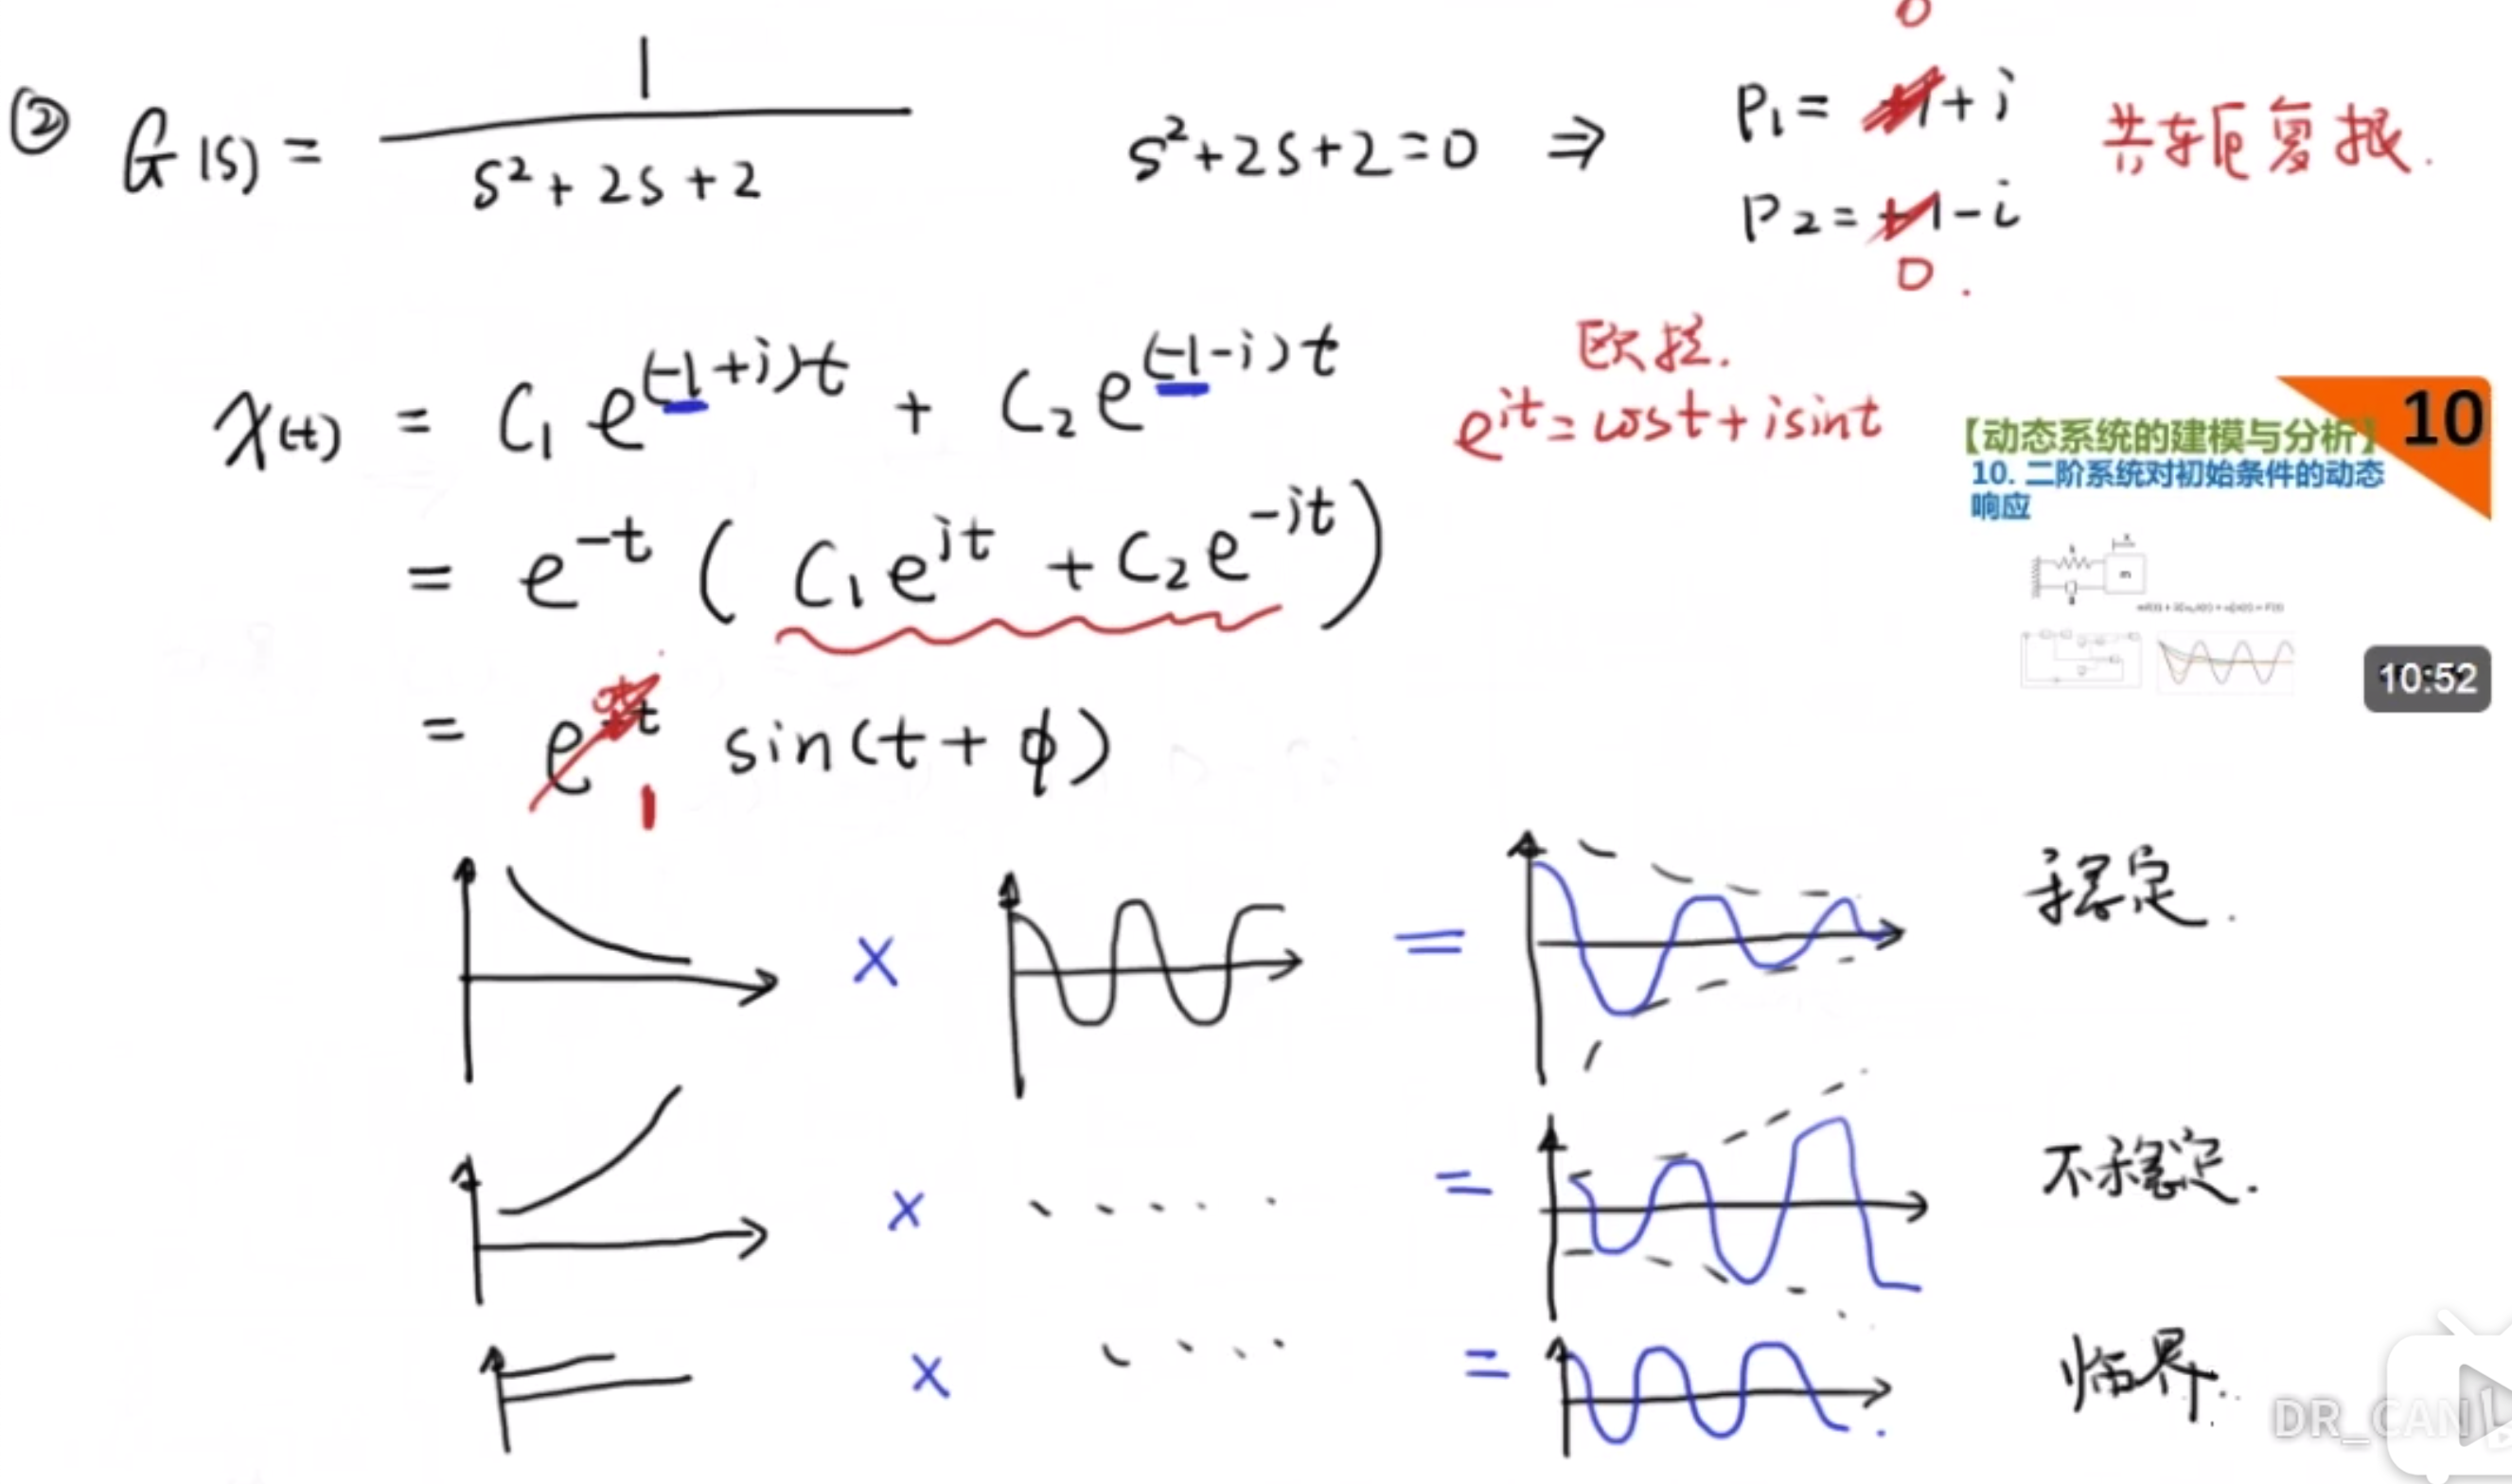 ② G(s) = 1 / (s² + 2s + 2)
s² + 2s + 2 = 0 ⇒
0
P₁ = +1 + i
P₂ = +1 - i
0 .
共轭复根.
x(t) = C₁ e^(-1+i)t + C₂ e^(-1-i)t
欧拉.
e^it = cost + isint
= e^-t ( C₁ e^it + C₂ e^-it )
= e^+t sin(t + φ)
1
10
【动态系统的建模与分析】
10. 二阶系统对初始条件的动态
响应
m
10:52
× = 稳定.
× = 不稳定.
× = 临界.
DR_CAN